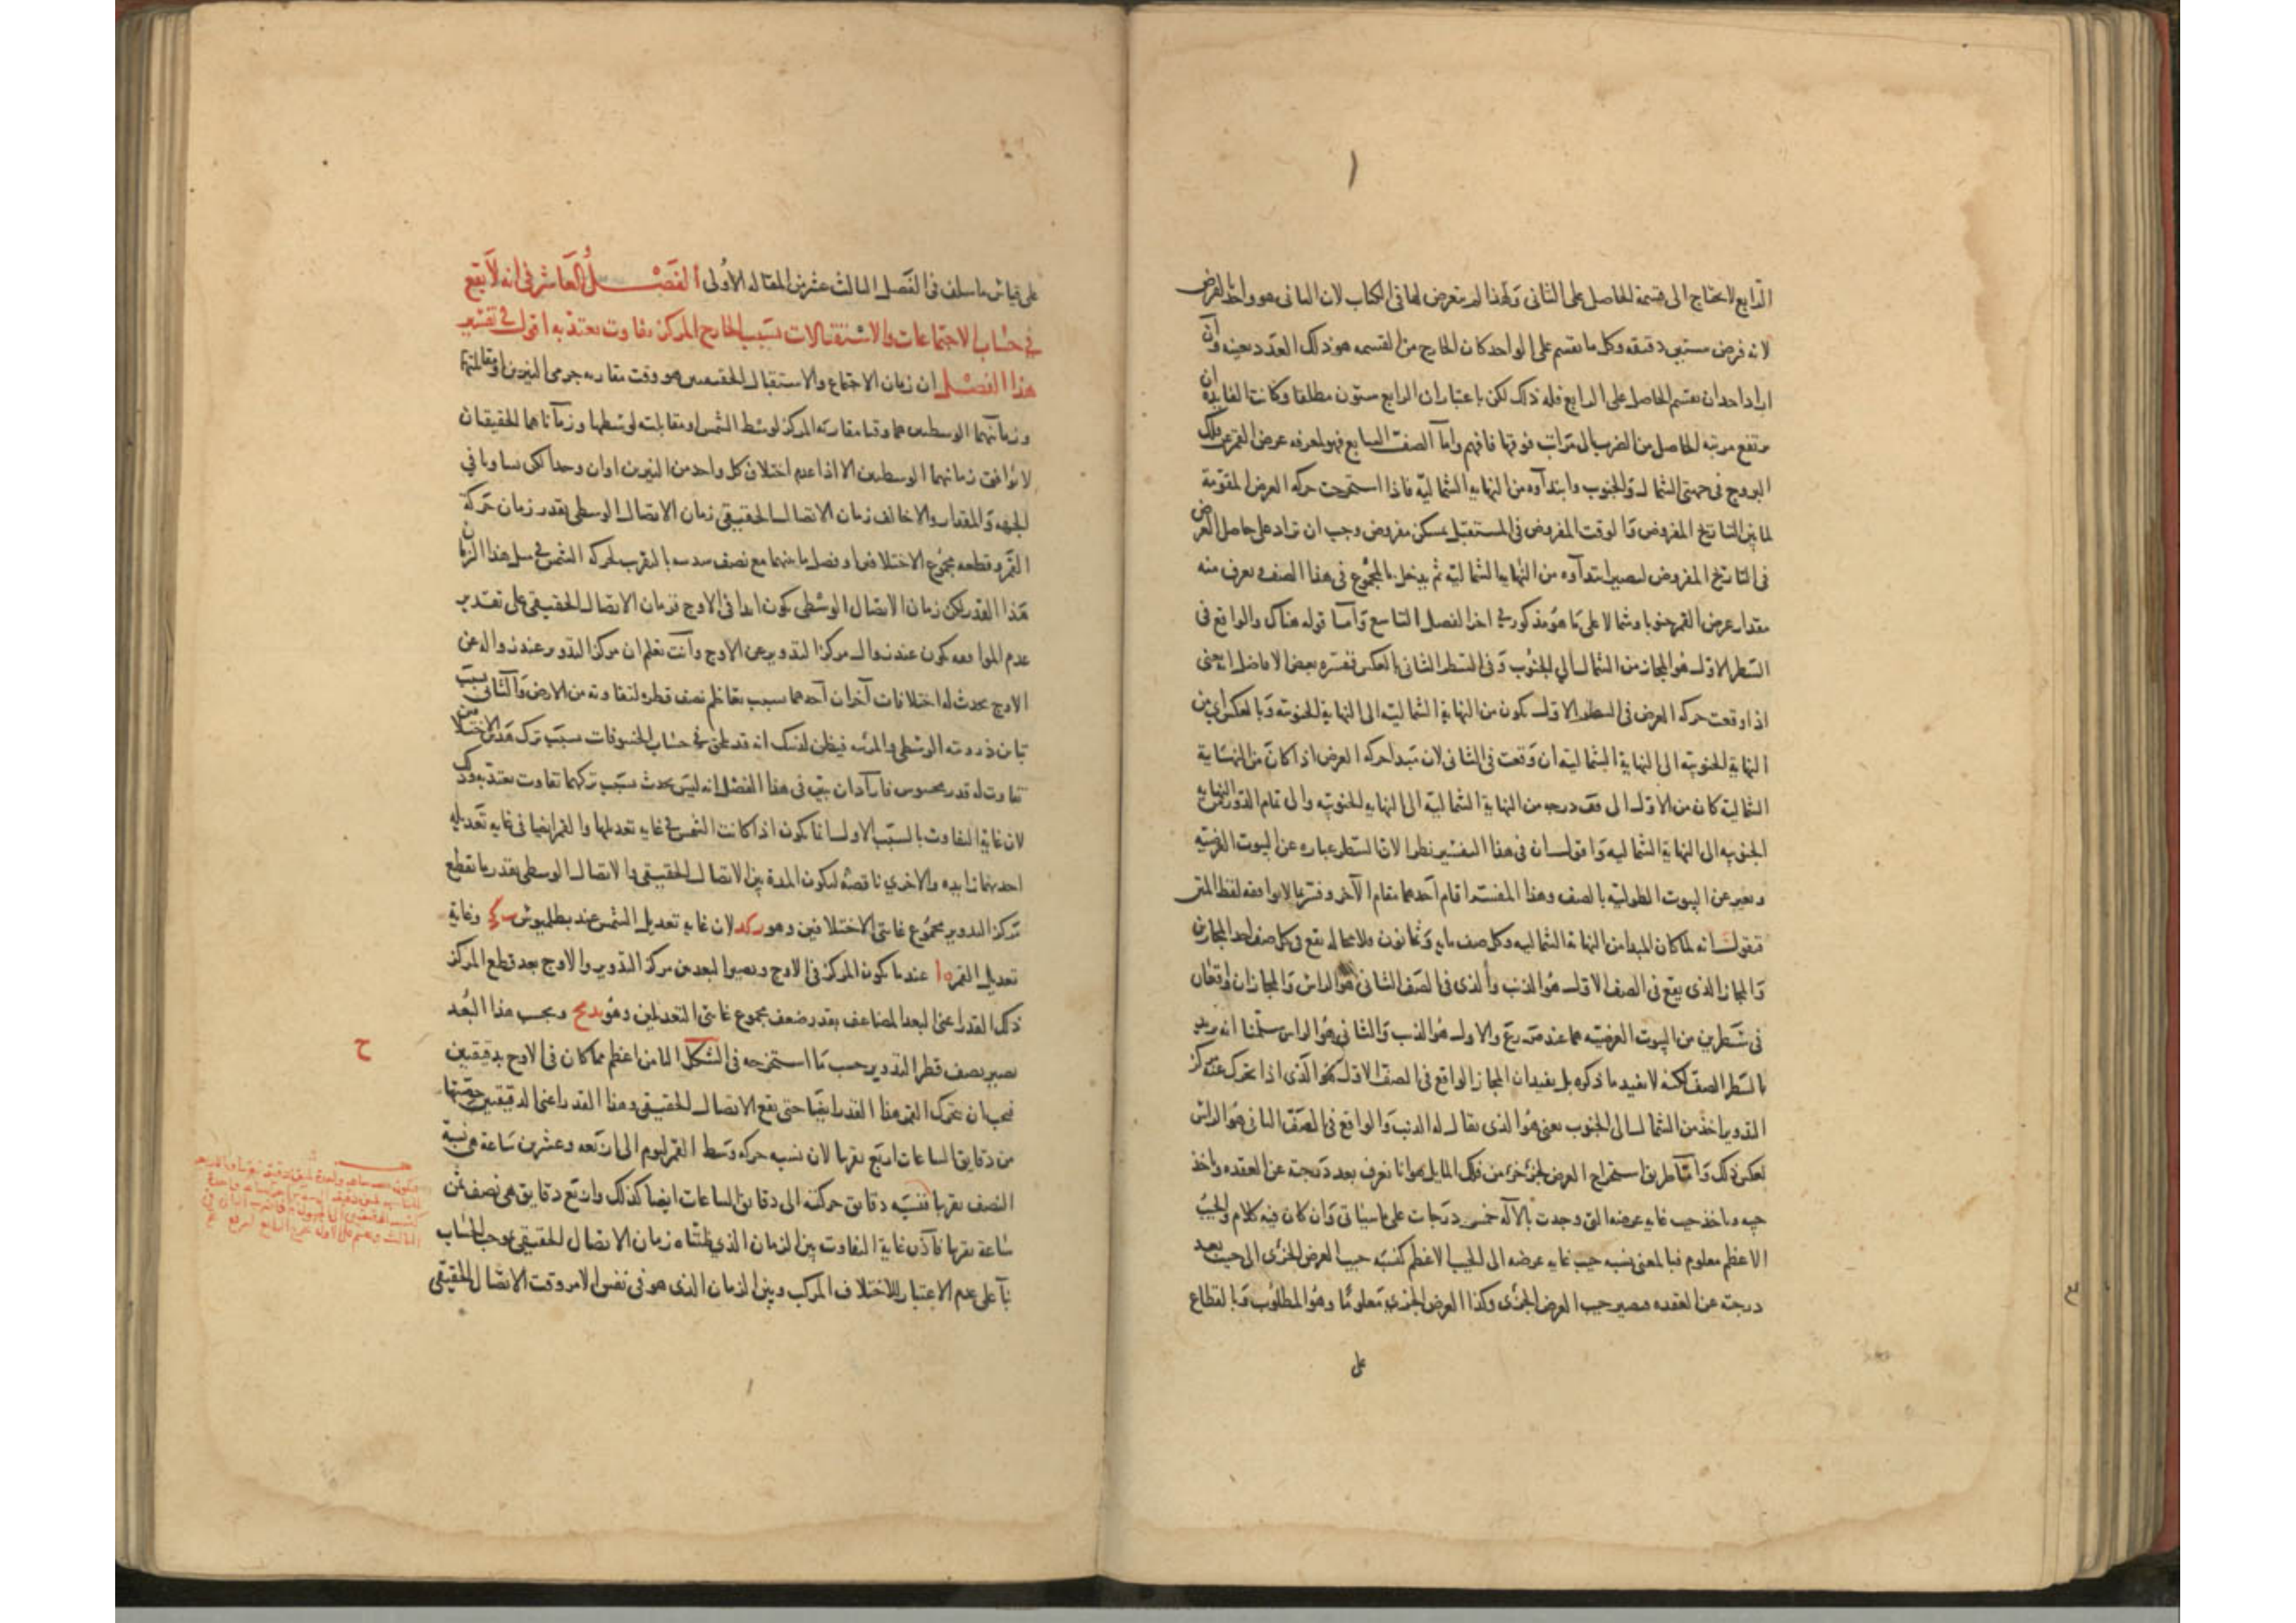 الرابع لا يحتاج الى قسمة الحاصل على الثانى ولهذا لم يتعرض لها فى الكتاب لان الثانى هو واحد الفرض
لانه فرض ستين دقيقه وكل ما يقسم على الواحد كان الخارج من القسمه هو ذلك العدد بعينه وان
اراد احد ان يقسم الحاصل على الرابع فله ذلك لكن باعتبار ان الرابع ستون مطلقا وكانت الفايدة ان
يرتفع مرتبه الحاصل من الضرب الى مراتب فوقها فافهم واما الصف السابع فهو لمعرفه عرض القمر عن فلك
البروج فى جهتى الشمال والجنوب وابتدآوه من النهايه الشماليه فاذا استخرجت حركه العرض المقومة
لما بين التاريخ المفروض والوقت المفروض فى المستقبل بمسكن مفروض وجب ان تزاد على حاصل العرض
فى التاريخ المفروض ليصير ابتدآوه من النهايه الشماليه ثم يدخل بالمجموع فى هذا الصف ويعرف منه
مقدار عرض القمر جنوبا وشمالا على ما هو مذكور فى اخر الفصل التاسع وآما قوله هناك والواقع فى
السطر الاول هو المجاز من الشمال الى الجنوب وفى السطر الثانى بالعكس ففسره بعض الافاضل
اذا وقعت حركه العرض فى السطر الاول يكون من النهاية الشماليه الى النهاية الجنوبيه وبالعكس اى من
النهاية الجنوبيه الى النهاية الشماليه ان وقعت فى الثانى لان مبدا حركه العرض اذا كان من النهاية
الشماليه كان من الاول الى قف درجه من النهاية الشماليه الى النهايه الجنوبيه والى تمام الدور من النهايه
الجنوبيه الى النهاية الشماليه واقول ان فى هذا التفسير نظرا لان السطر عباره عن البيوت العرضيه
ويعبر عن البيوت الطوليه بالصف وهذا المفسر اقام احدهما مقام الآخر وفسر بما لا يوافقه لفظ المتن
فنقول انه لما كان المبدا من النهاية الشماليه وكل صف مايه وثمانون فلا محاله يقع فى كل صف احد المجازين
والمجاز الذى يقع فى الصف الاول هو الذنب والذى فى الصف الثانى هو الراس والمجازان واقعان
فى سطرين من البيوت العرضيه هما عند ص رع والاول هو الذنب والثانى هو الراس سلمنا انه
بالسطر الصف لكنه لا يفيد ما ذكره بل يفيد ان المجاز الواقع فى الصف الاول هو الذى اذا تحرك عنه مركز
التدوير اخذ من الشمال الى الجنوب يعنى هو الذى يقال له الذنب والواقع فى الصف الثانى هو الراس
بعكس ذلك واما طريق استخراج العرض لجزء جزء من فلك المايل فهو انا نعرف بعد درجته عن العقده وناخذ
جيبه وناخذ جيب غايه عرضه التى وجدت بالآله خمس درجات على ما سياتى وان كان فيه كلام والجيب
الاعظم معلوم فبالمعنى نسبه جيب غايه عرضه الى الجيب الاعظم كنسبه جيب العرض الجزئى الى جيب بعد
درجته عن العقده فيصير جيب العرض الجزئى وكذا العرض الجزئى معلوما وهو المطلوب وبالقطاع
على
على قياس ما سلف فى الفصل الثالث عشر من المقاله الاولى الفصل العاشر فى انه لا يقع
فى حساب الاجتماعات والاستقبالات بسبب الخارج المركز تفاوت يعتد به اقول فى تفسير
هذا الفصل ان زمان الاجتماع والاستقبال الحقيقيين هو وقت مقارنه جرمى النيرين او مقابلتهما
وزمانهما الوسطيين هما وقتا مقارنه المركز لوسط الشمس او مقابلته لوسطها وزماناهما الحقيقيان
لا يوافق زمانهما الوسطيين الا اذا عدم اختلاف كل واحد من النيرين او ان وجدا لكن تساويا فى
الجهه والمقدار والا خالف زمان الاتصال الحقيقى زمان الاتصال الوسطى بقدر زمان حركة
القمر وقطعه مجموع الاختلافين او فضل ما بينهما مع نصف سدسه بالتقريب لحركه الشمس فى مثل هذا الزمان
هذا القدر لكن زمان الاتصال الوسطى يكون ابدا فى الاوج فزمان الاتصال الحقيقى على تقدير
عدم الموافقه يكون عند زوال مركز التدوير عن الاوج وانت تعلم ان مركز التدوير عند زواله عن
الاوج يحدث له اختلافات آخران احدهما بسبب تعاظم نصف قطره لتفاوته من الارض والثانى بسبب
تباين ذروته الوسطى والمرئيه فيظن لذلك انه قد يقع فى حساب الخسوفات بسبب ترك هذين الاختلافين
تفاوت له قدر محسوس فاراد ان يبين فى هذا الفصل انه ليس يحدث بسبب تركهما تفاوت يعتد به وذلك
لان غاية التفاوت بالسبب الاول انما يكون اذا كانت الشمس فى غايه تعديلها والقمر ايضا فى غايه تعديله
احدهما زايده والاخرى ناقصه لتكون المدة بين الاتصال الحقيقى والاتصال الوسطى بقدر ما يقطع
مركز التدوير مجموع غايتى الاختلافين وهو ز كد لان غايه تعديل الشمس عند بطلميوس ب كج وغاية
تعديل القمر ه ا عند ما يكون المركز فى الاوج ويصير البعد من مركز التدوير والاوج بعد قطع المركز
ذلك القدر اعنى البعد المضاعف بقدر ضعف مجموع غايتى التعديلين وهو يد مح وبحسب هذا البعد
يصير نصف قطر التدوير حسب ما استخرجه فى الشكل الثامن اعظم مما كان فى الاوج بدقيقتين
فيجب ان يتحرك القمر هذا القدر ايضا حتى يقع الاتصال الحقيقى وهذا القدر اعنى الدقيقتين حصتها
من دقايق الساعات اربع تقريبا لان نسبه حركه وسط القمر ليوم الى اربعه وعشرين ساعة هى نسبة
النصف تقريبا فنسبه دقايق حركته الى دقايق الساعات ايضا كذلك واربع دقايق هى نصف ثمن
ساعة تقريبا فآذن غاية التفاوت بين الزمان الذى ظنناه زمان الاتصال الحقيقى بموجب الحساب
بنآ على عدم الاعتبار للاختلاف المركب وبين الزمان الذى هو فى نفس الامر وقت الاتصال الحقيقى
ح